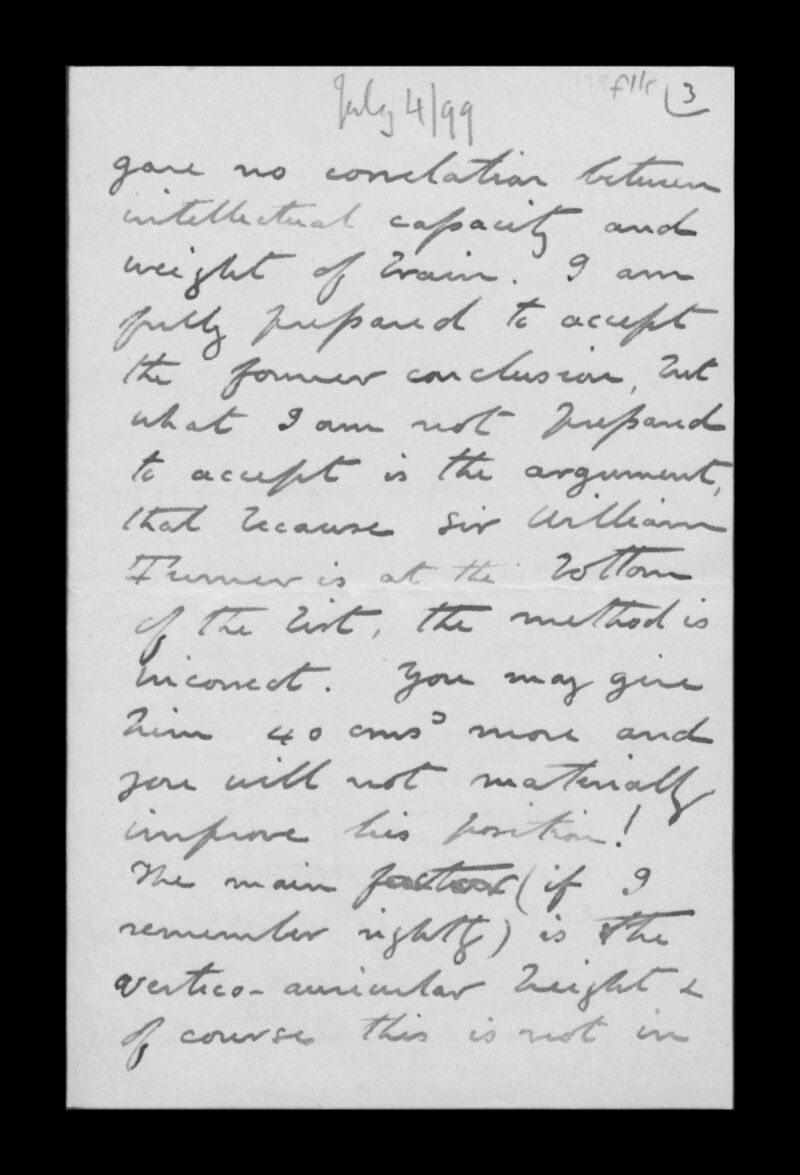 July 4/99
3
gave no correlation between
intellectual capacity and
weight of brain. I am
fully prepared to accept
the former conclusion, but
what I am not prepared
to accept is the argument,
that because Sir William
Turner is at the bottom
of the list, the method is
incorrect. You may give
him 40 cms³ more and
you will not materially
improve his position!
The main factor (if I
remember rightly) is the
vertico-auricular height &
of course this is not in